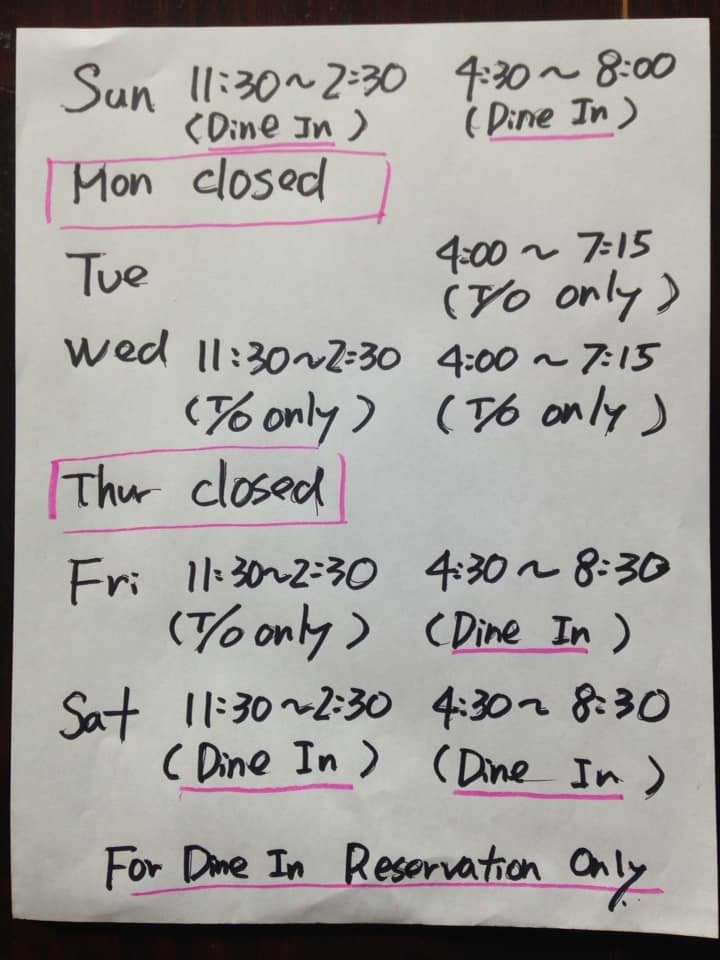 Sun 11:30~2:30 4:30~8:00
(Dine In) (Dine In)
Mon closed
Tue 4:00~7:15
(T/O only)
Wed 11:30~2:30 4:00~7:15
(T/O only) (T/O only)
Thur closed
Fri 11:30~2:30 4:30~8:30
(T/O only) (Dine In)
Sat 11:30~2:30 4:30~8:30
(Dine In) (Dine In)
For Dine In Reservation Only